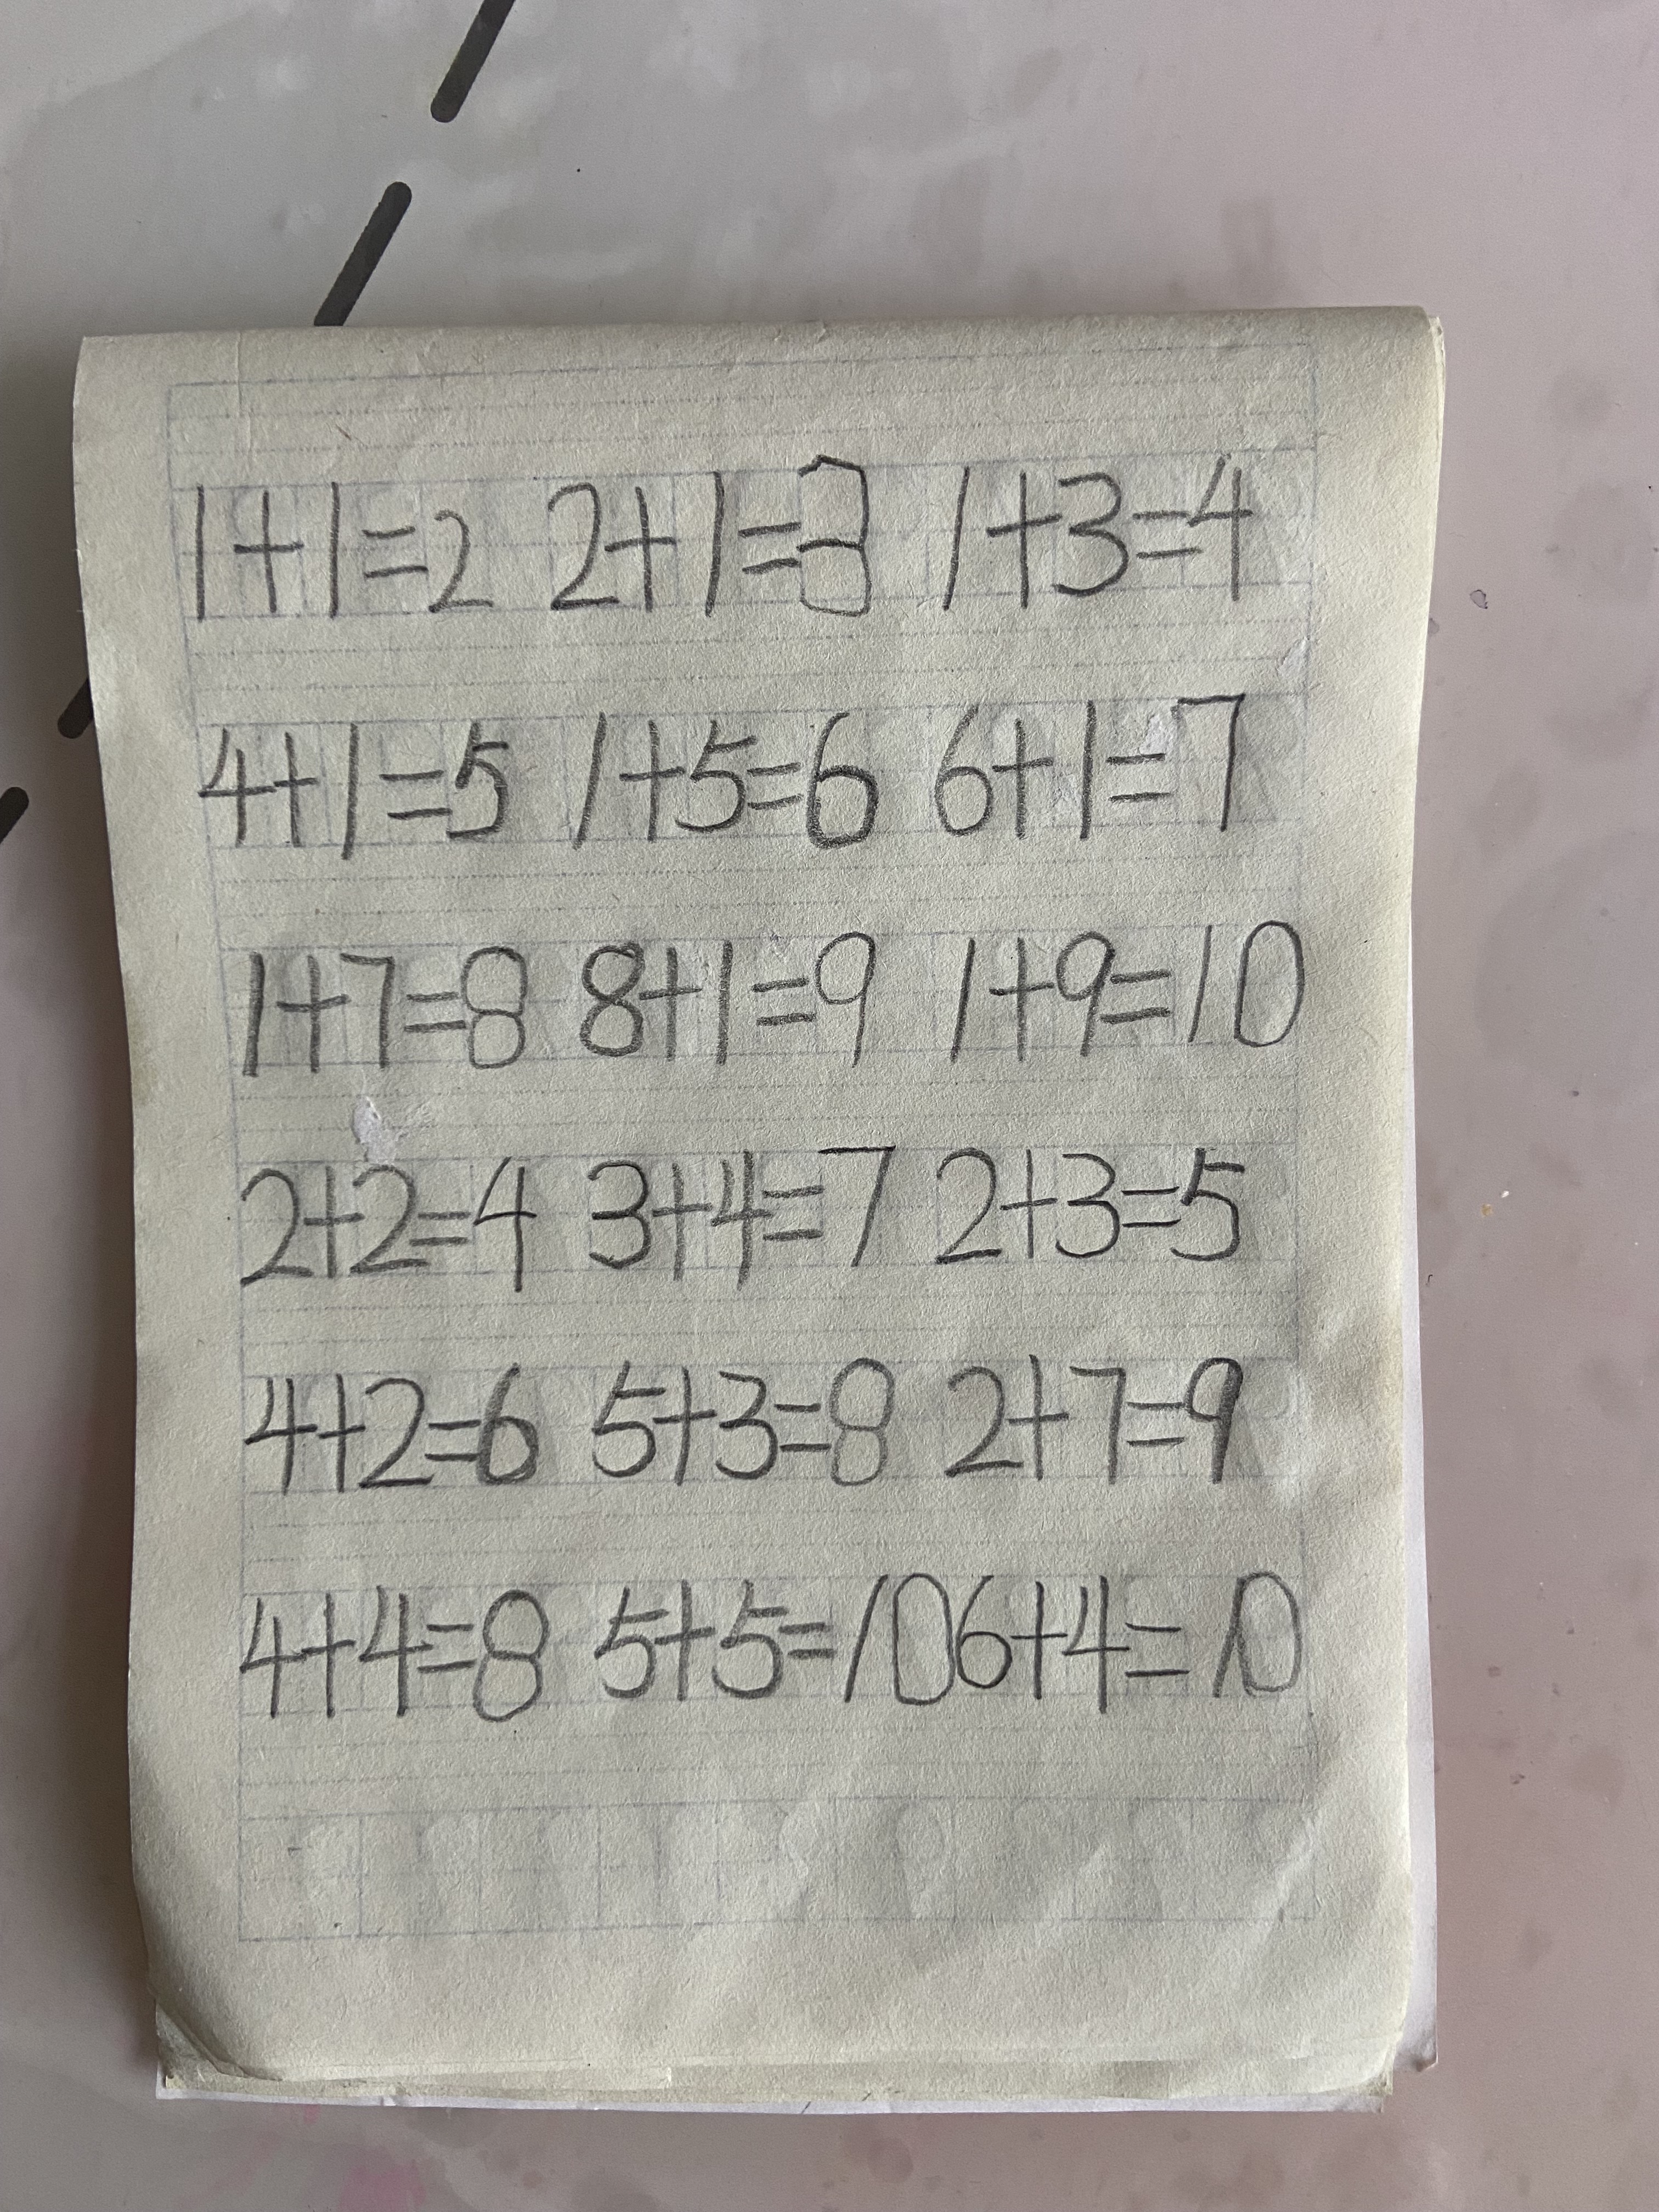 1+1=2 2+1=3 1+3=4
4+1=5 1+5=6 6+1=7
1+7=8 8+1=9 1+9=10
2+2=4 3+4=7 2+3=5
4+2=6 5+3=8 2+7=9
4+4=8 5+5=10 6+4=10